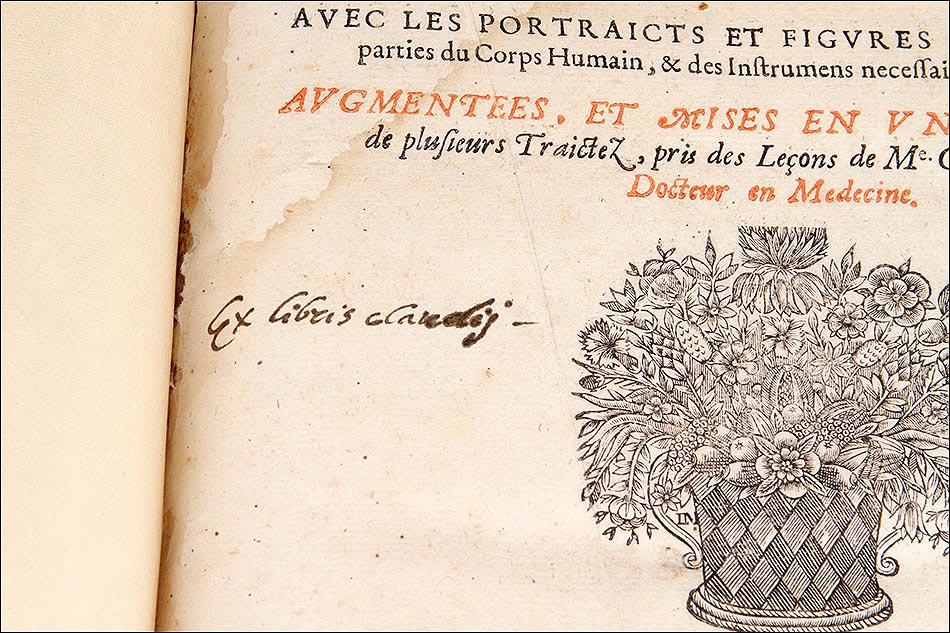 AVEC LES PORTRAICTS ET FIGVRES
parties du Corps Humain, & des Inſtrumens neceſſai
AVGMENTEES, ET MISES EN VN
de pluſieurs Traictez, pris des Leçons de Me. G
Docteur en Medecine.
Ex libris claudij –
IM